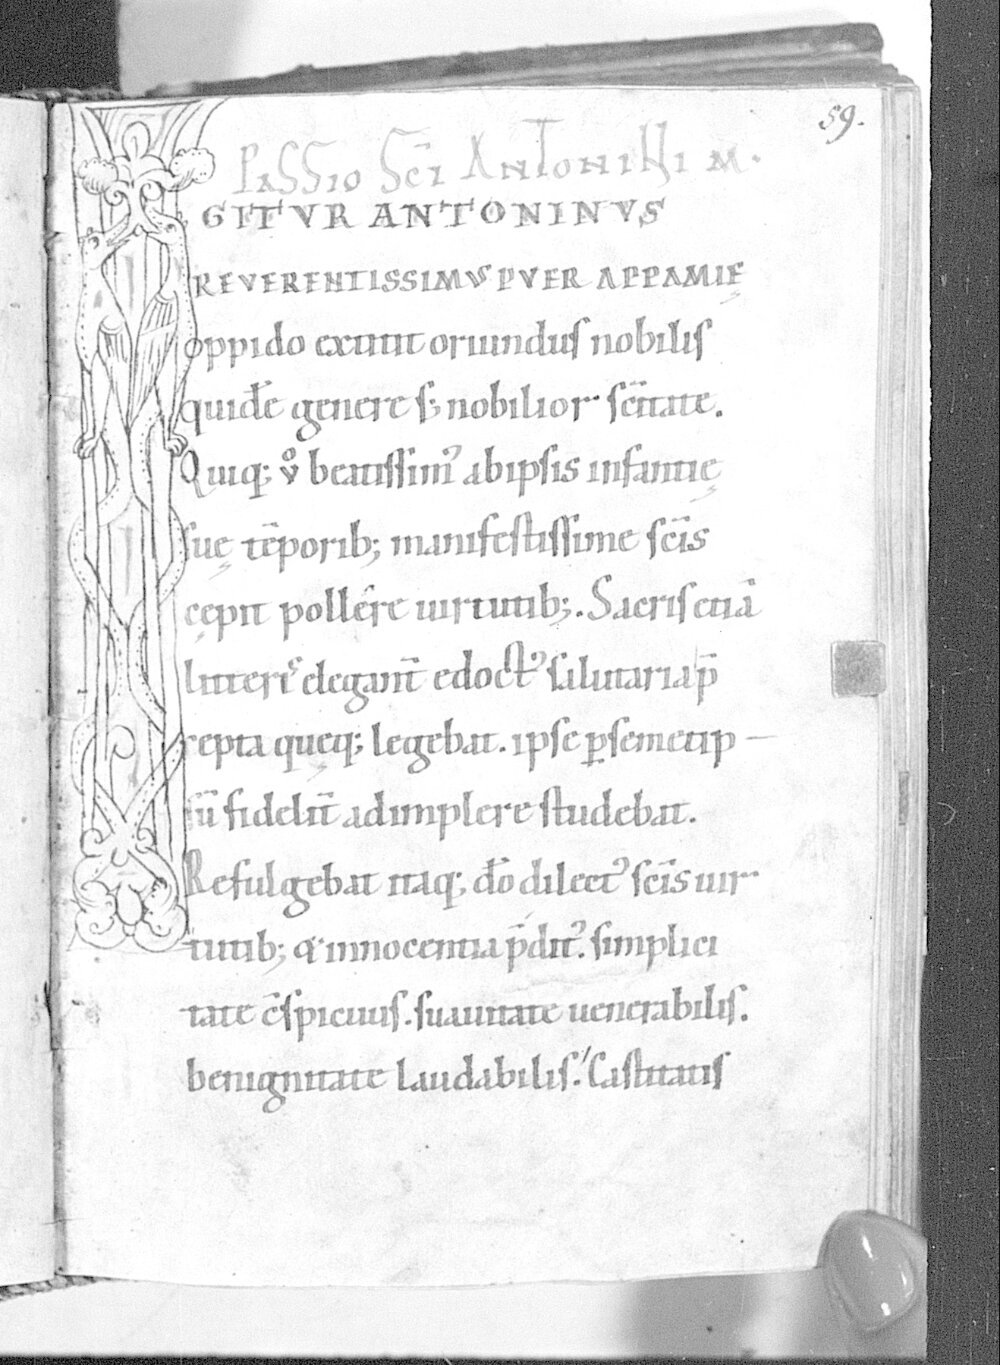 59.
Passio Sc̄i Antonini M.
IGITVR ANTONINVS
REVERENTISSIMVS PVER APPAMIĘ
oppido extitit oriundus nobilis
quidē genere s; nobilior. sc̄itate.
Quiq; v̊ beatissim᾿ ab ipsis infantię
suę tēporib; manifestissime sc̄is
cępit pollēre uirtutib;. Sacris etiā
litteris eleganт̄ edoct᾿ salutaria p̄
cepta queq; legebat. ipse ꝑ semetip —
sū fideliт̄ adimplere studebat.
Refulgebat itaq; dō dilect᾿ sc̄is uir-
tutib; & innocentia p̄dit᾿. simplici
tate c̄spicuus. suauitate uenerabilis.
benignitate laudabilis. Castitatis